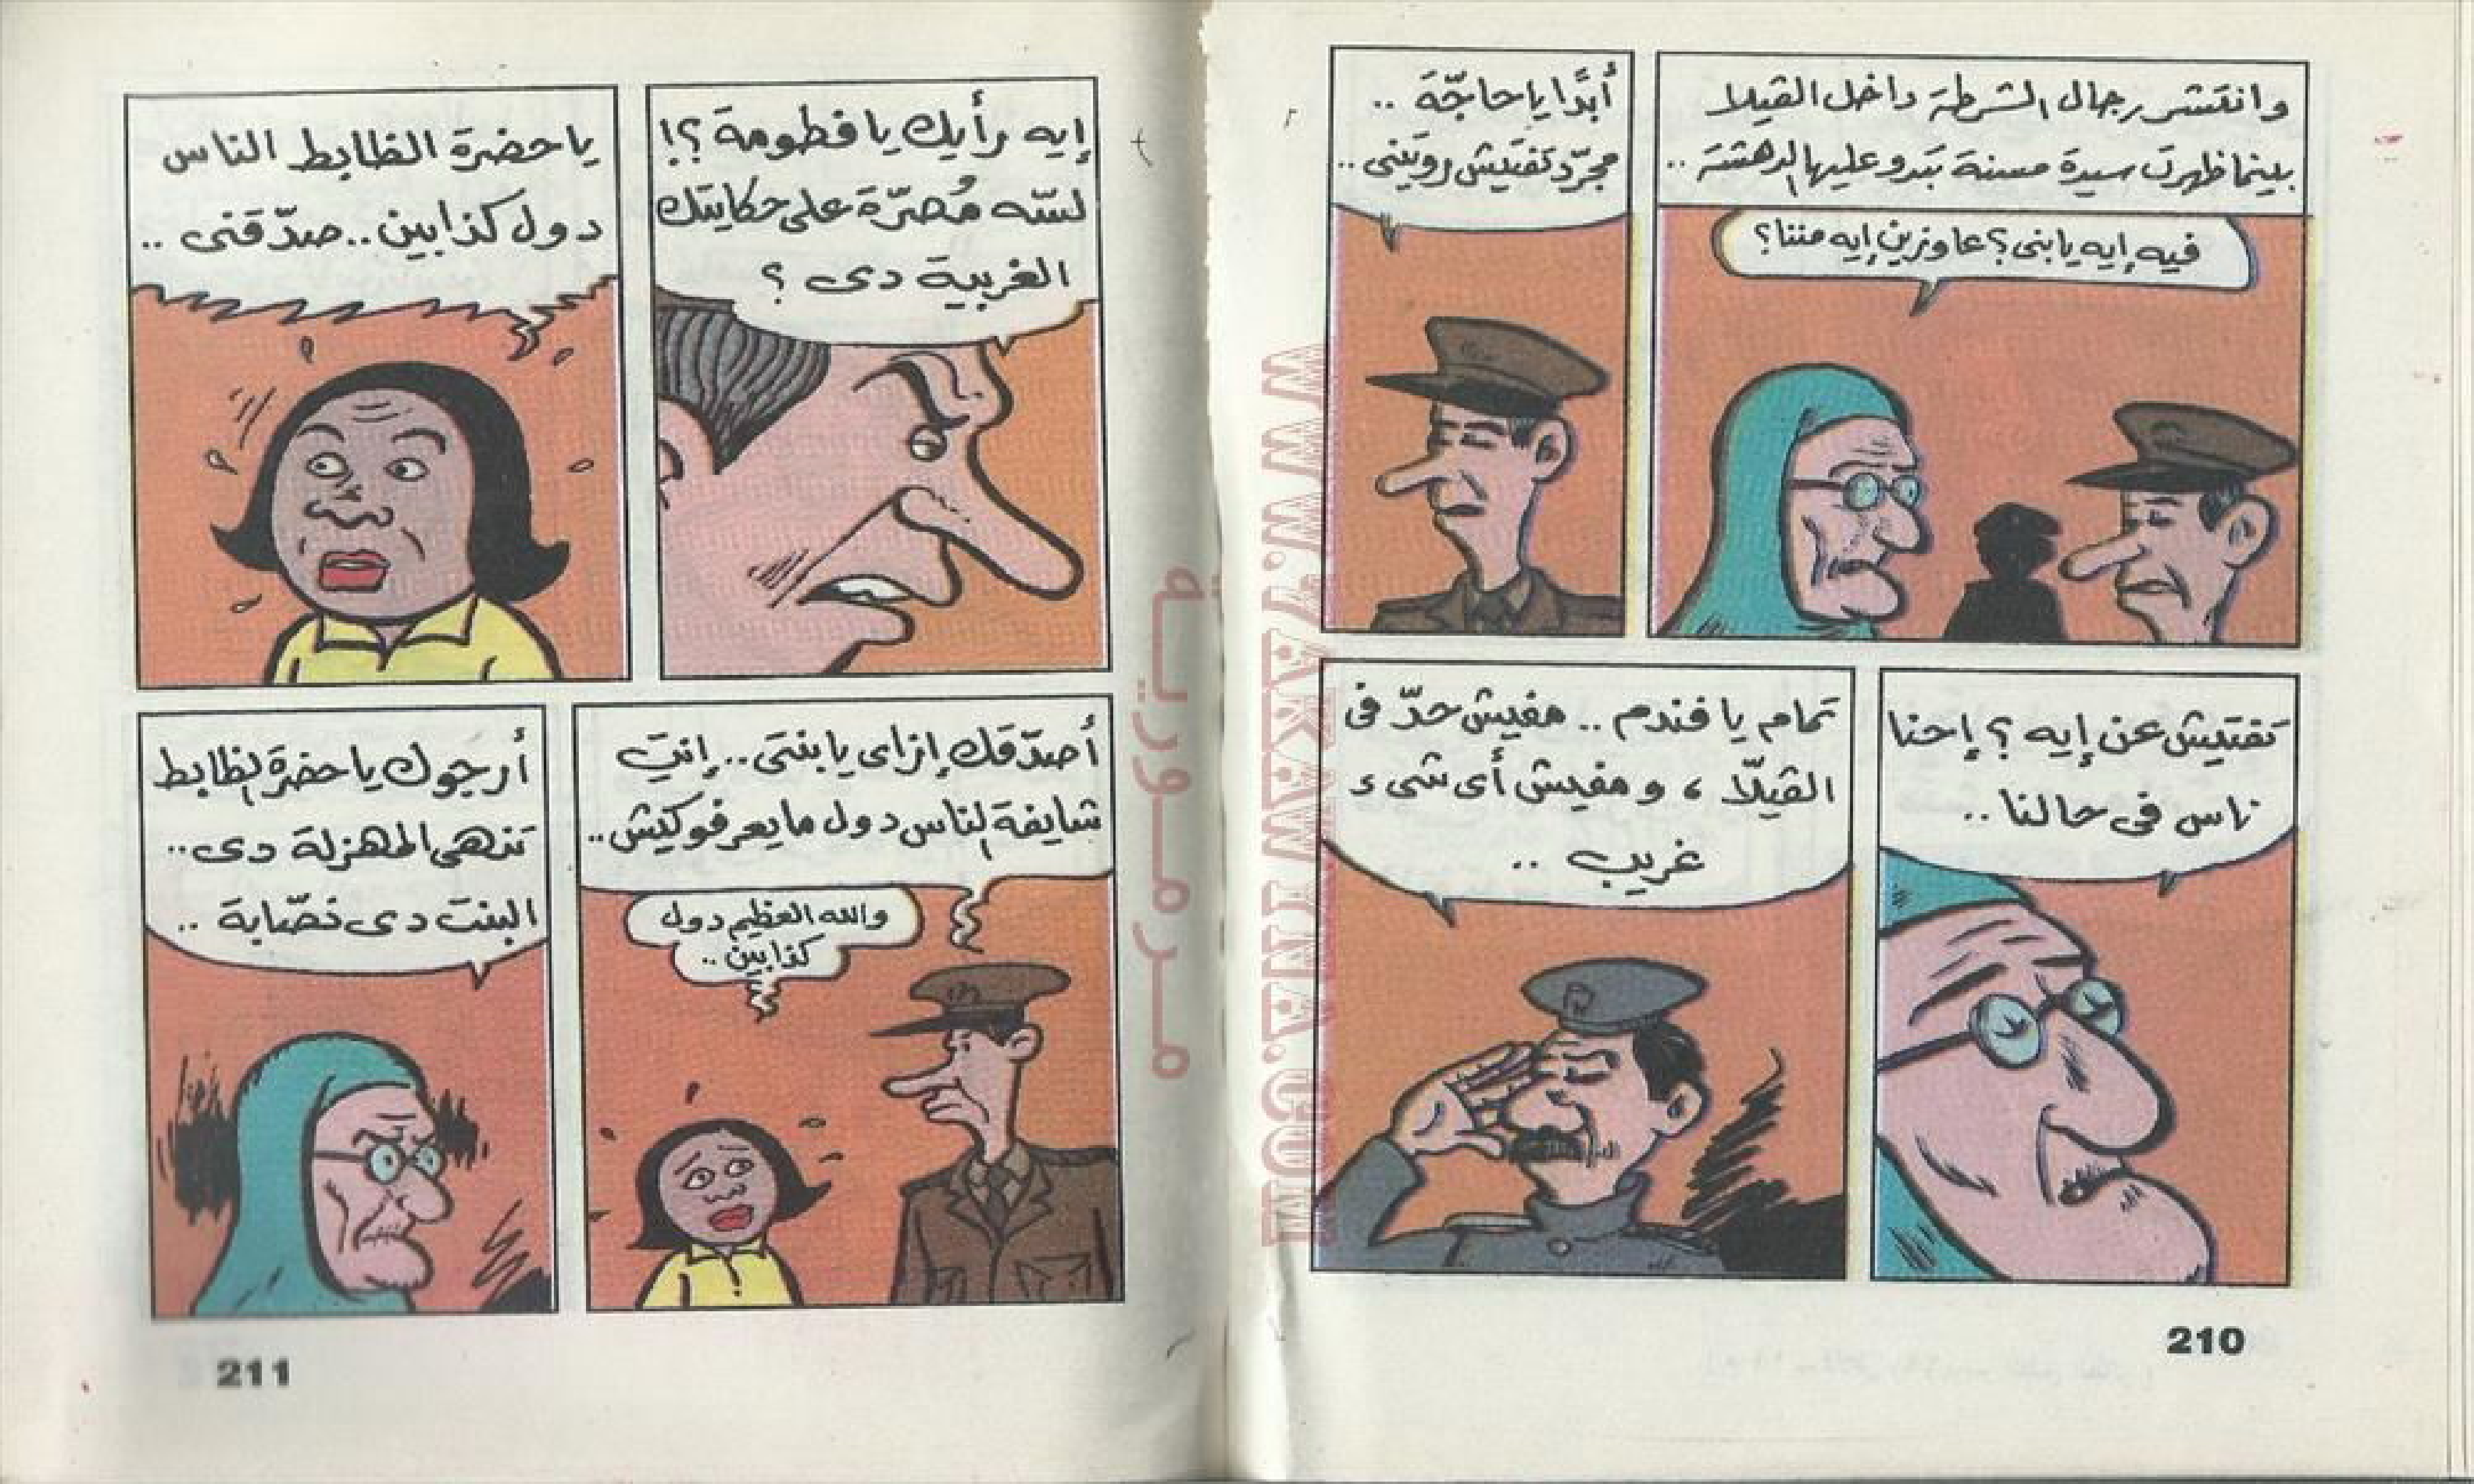 وانتشر رجال الشرطة داخل الڤيلا
بينما ظهرت سيدة مسنة تبدو عليها الدهشة ..
فيه إيه يابنى؟ عاوزين إيه مننا؟
أبدًا يا حاجّة ..
مجرّد تفتيش روتينى ..
تفتيش عن إيه ؟ إحنا
ناس فى حالنا ..
تمام يا فندم .. مفيش حدّ فى
الڤيلّا ، ومفيش أى شىء
غريب ..
210
إيه رأيك يا فطومة ؟!
لسّه مُصرّة على حكايتك
الغريبة دى ؟
يا حضرة الظابط الناس
دول كذابين .. صدّقنى ..
أصدّقك إزاى يا بنتى .. إنتِ
شايفة الناس دول ما يعرفوكيش ..
والله العظيم دول
كذابين ..
أرجوك يا حضرة الظابط
تنهى المهزلة دى ..
البنت دى نصّابة ..
211
مرمورية
WWW.VAKWETNA.COM